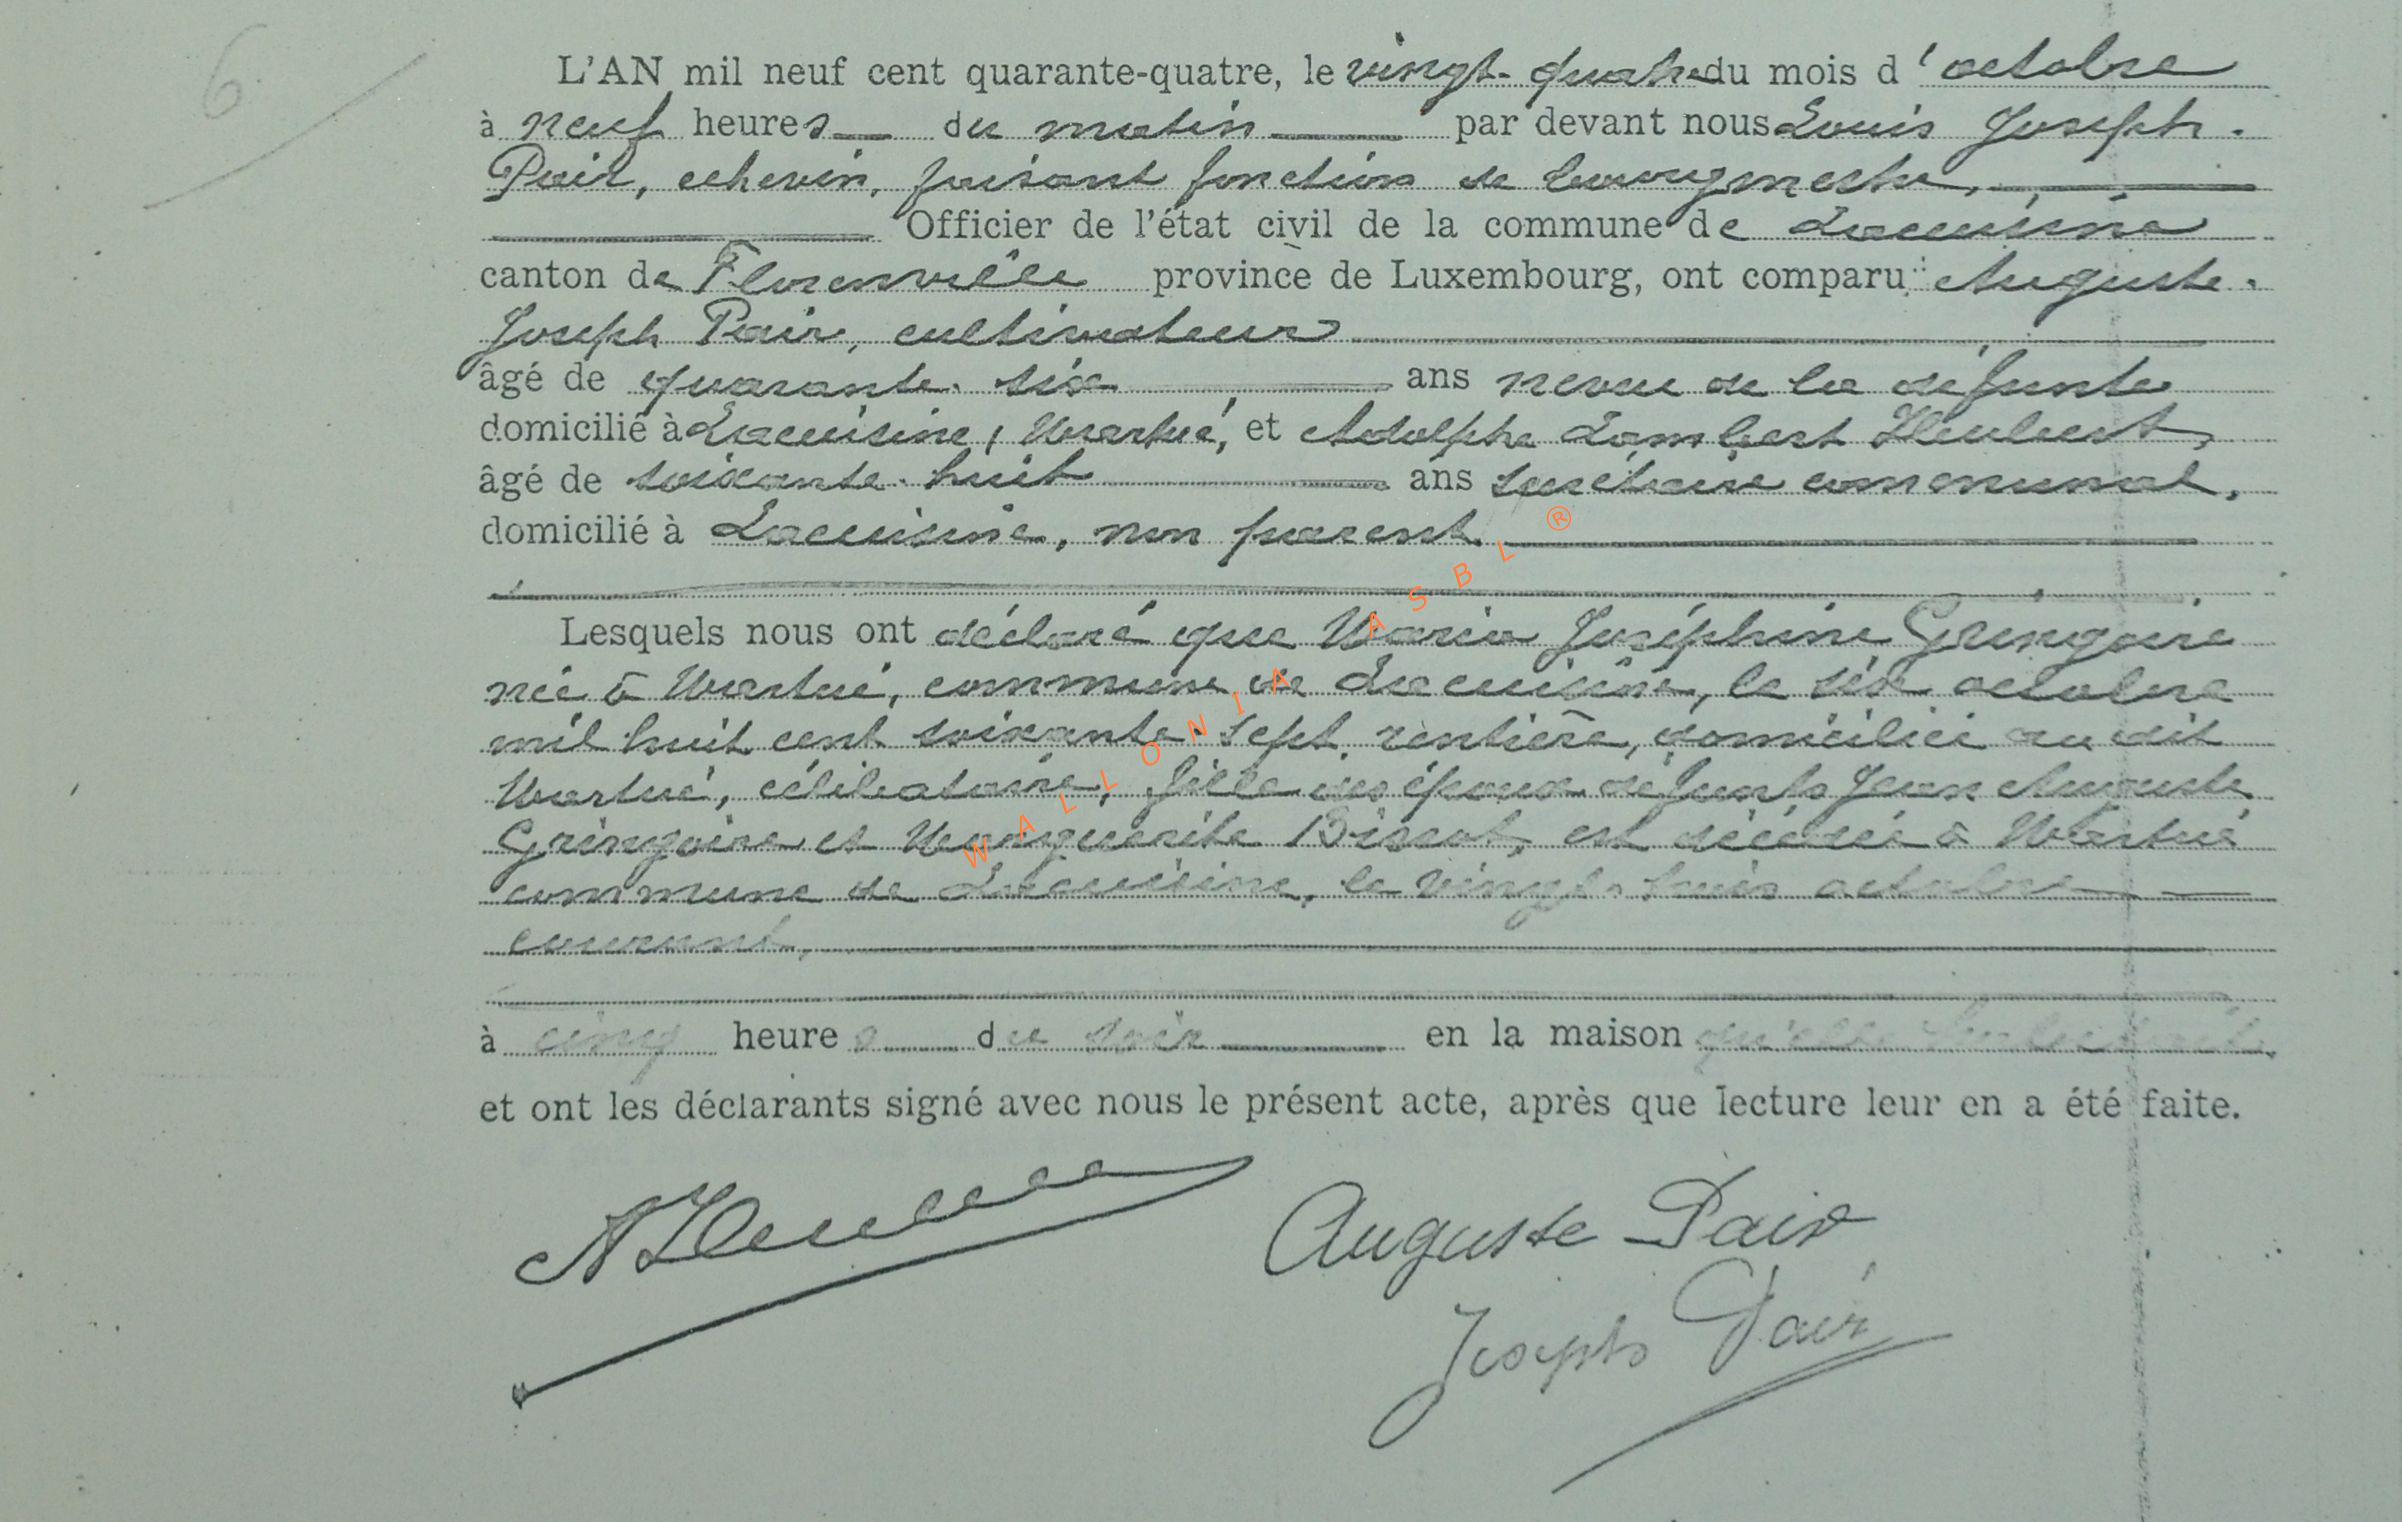 6
L'AN mil neuf cent quarante-quatre, le vingt-quatre du mois d'octobre
à neuf heures du matin par devant nous Louis Joseph
Pair, echevin, faisant fonction de bourgmestre,
Officier de l'état civil de la commune de Lacuisine
canton de Florenville province de Luxembourg, ont comparu : Auguste
Joseph Pair, cultivateur
âgé de quarante-six ans neveu de la défunte
domicilié à Lacuisine, Martué, et Adolphe Lambert
âgé de soixante-huit ans secrétaire communal,
domicilié à Lacuisine, non parent.
Lesquels nous ont déclaré que Maria Joséphine Gringoire
née à Martué, commune de Lacuisine, le six octobre
mil huit cent soixante-sept, rentière, domiciliée au dit
Martué, célibataire, fille des époux défunts Jean Auguste
Gringoire et Marguerite Bissot, est décédée à Martué
commune de Lacuisine, le vingt-trois octobre
courant,
à cinq heures du soir en la maison qu'elle habitait,
et ont les déclarants signé avec nous le présent acte, après que lecture leur en a été faite.
Auguste Pair
Joseph Pair
WALLONIA ASBL ®